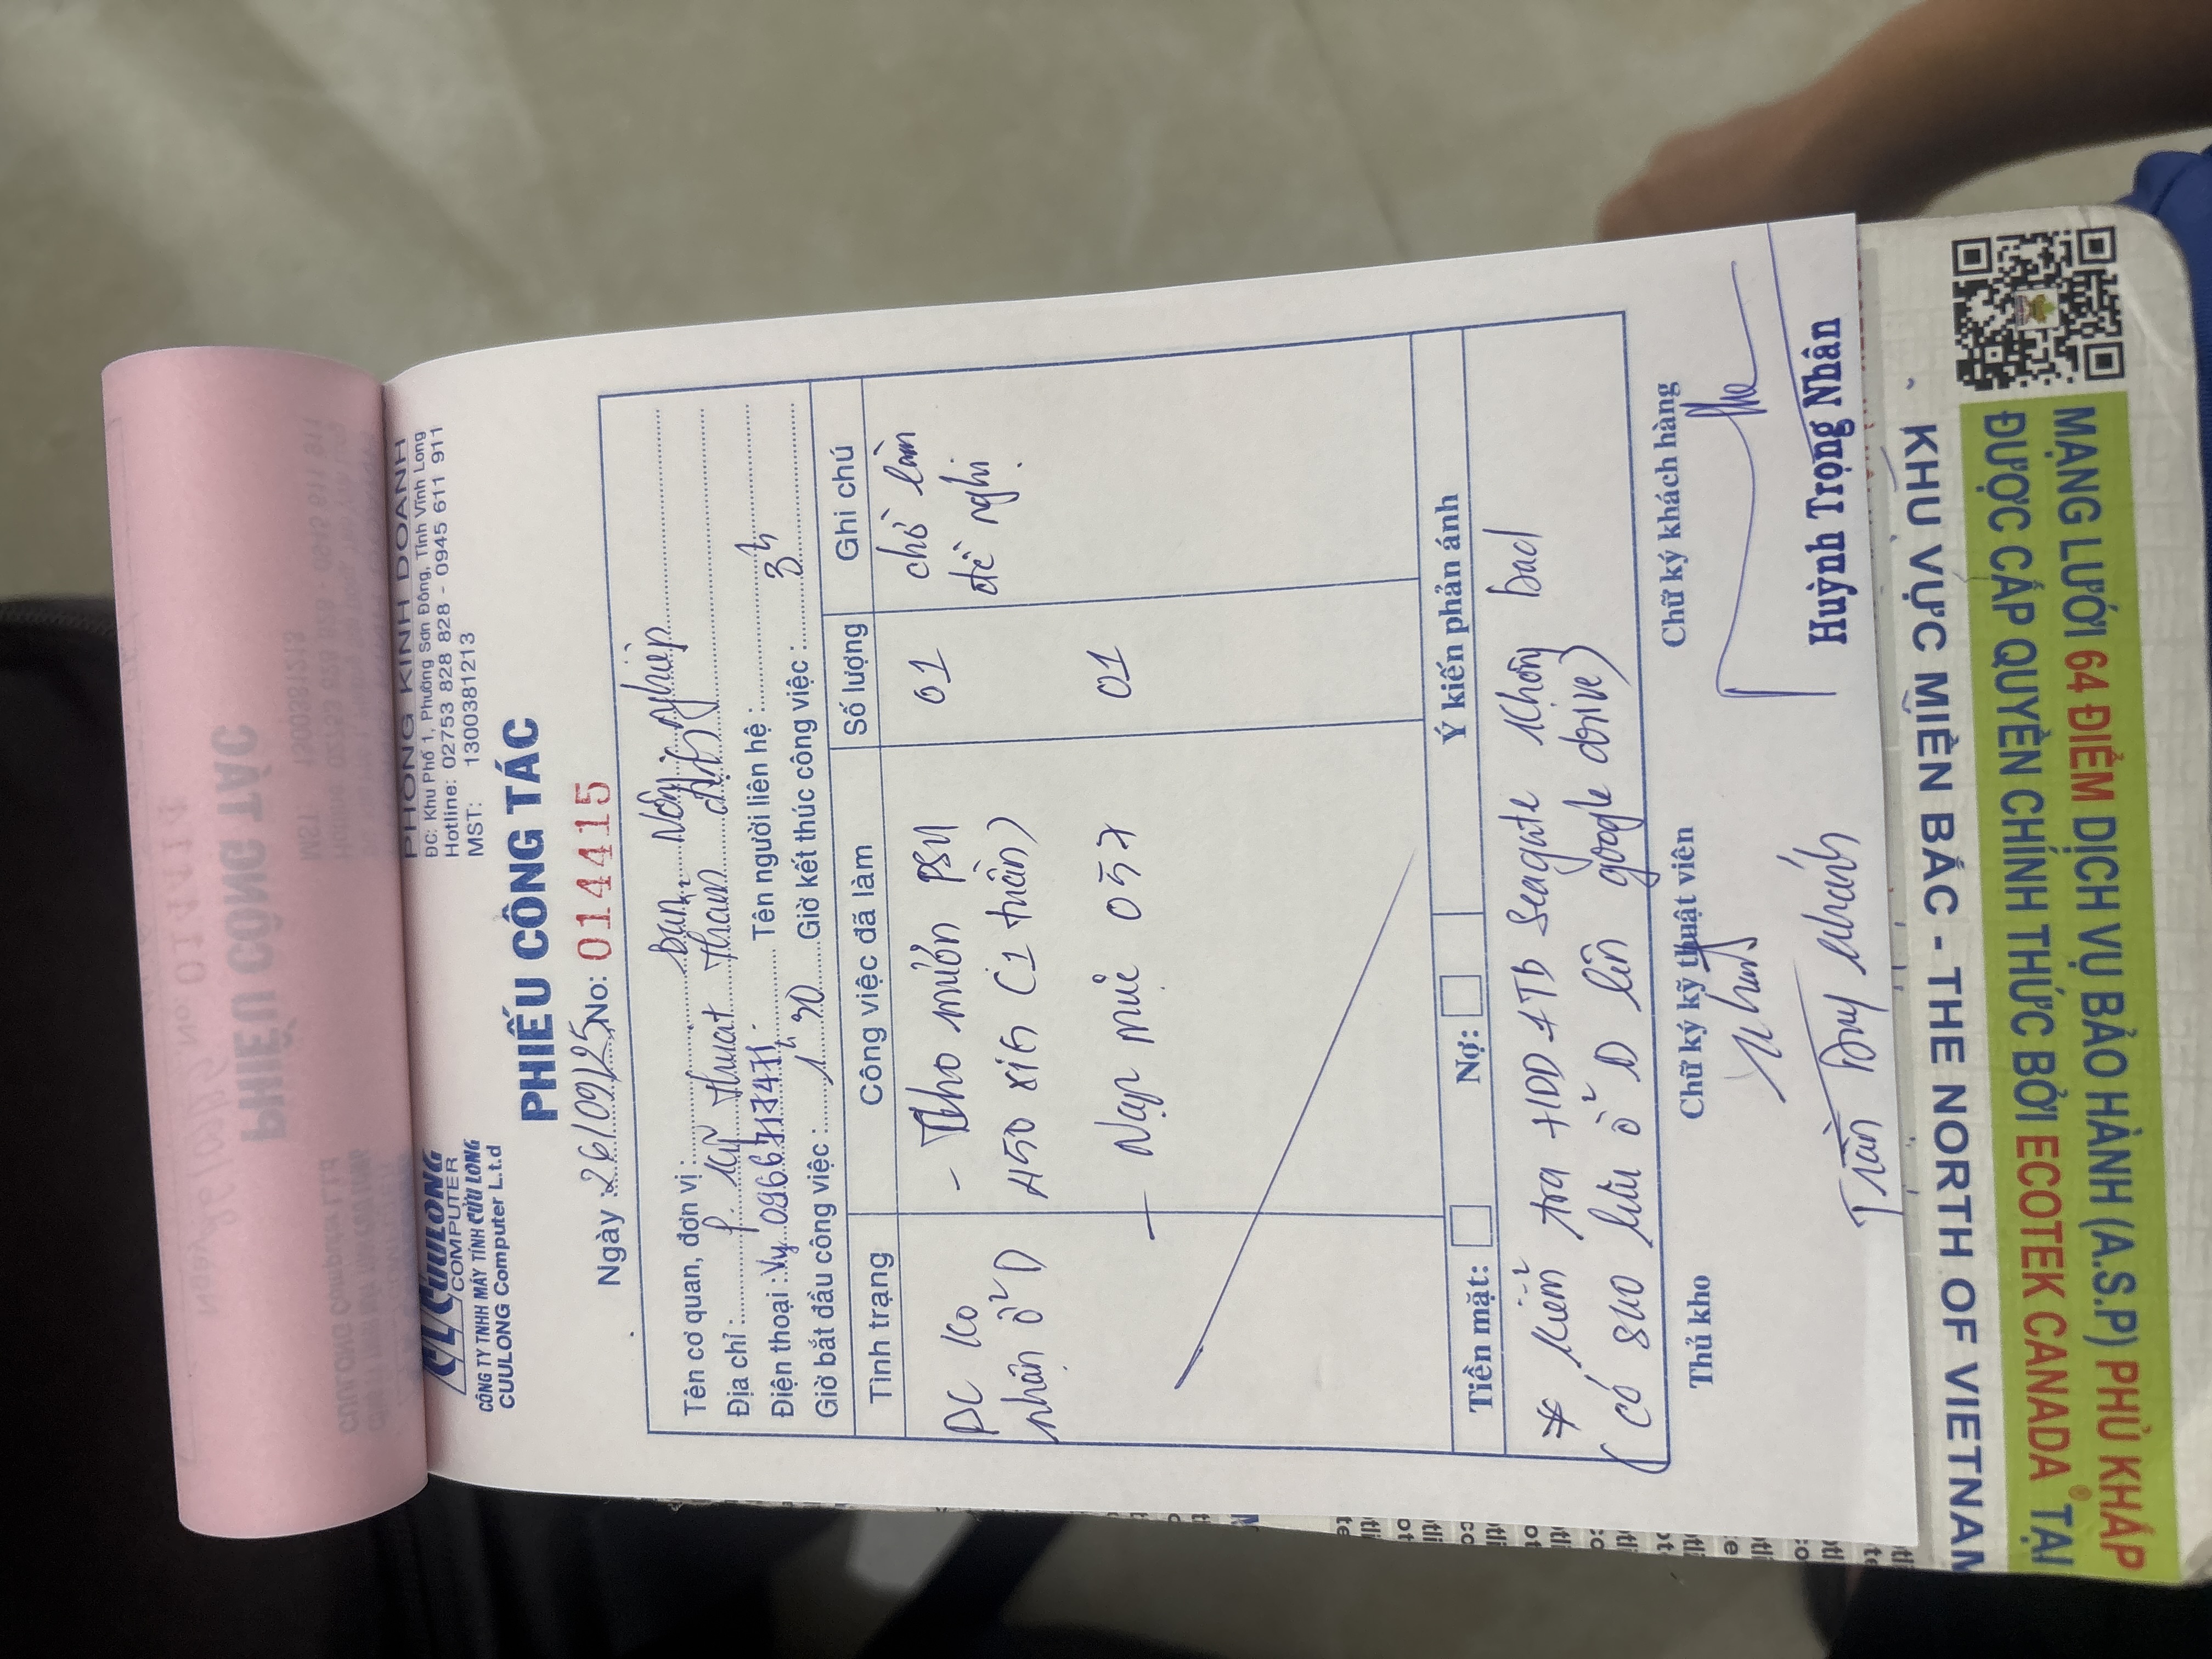 CL CUULONG
COMPUTER
CÔNG TY TNHH MÁY TÍNH CỬU LONG
CUULONG Computer L.t.d
PHÒNG KINH DOANH
ĐC: Khu Phố 1, Phường Sơn Đông, Tỉnh Vĩnh Long
Hotline: 02753 828 828 - 0945 611 911
MST: 1300381213
PHIẾU CÔNG TÁC
Ngày : 26/09/25 No: 014415
Tên cơ quan, đơn vị : Nông nghiệp
Địa chỉ : P. Kỹ thuat
Điện thoại : Vy Tên người liên hệ :
Giờ bắt đầu công việc : 1h30 Giờ kết thúc công việc : 3h
Tình trạng Công việc đã làm Số lượng Ghi chú
PC ko - Cho mượn PSU 01 chờ làm
nhận ổ D 450 xig (1 tuần) đề nghị
- Nạp mực 057 01
Tiền mặt: Nợ: Ý kiến phản ánh
* kiểm tra HDD 1Tb Seagate không bad
(có sao lưu ổ D lên google drive)
Thủ kho Chữ ký kỹ thuật viên Chữ ký khách hàng
Trần Duy Khánh Huỳnh Trọng Nhân
KHU VỰC MIỀN BẮC - THE NORTH OF VIETNAM
MẠNG LƯỚI 64 ĐIỂM DỊCH VỤ BẢO HÀNH (A.S.P) PHỦ KHẮP
ĐƯỢC CẤP QUYỀN CHÍNH THỨC BỞI ECOTEK CANADA® TẠI